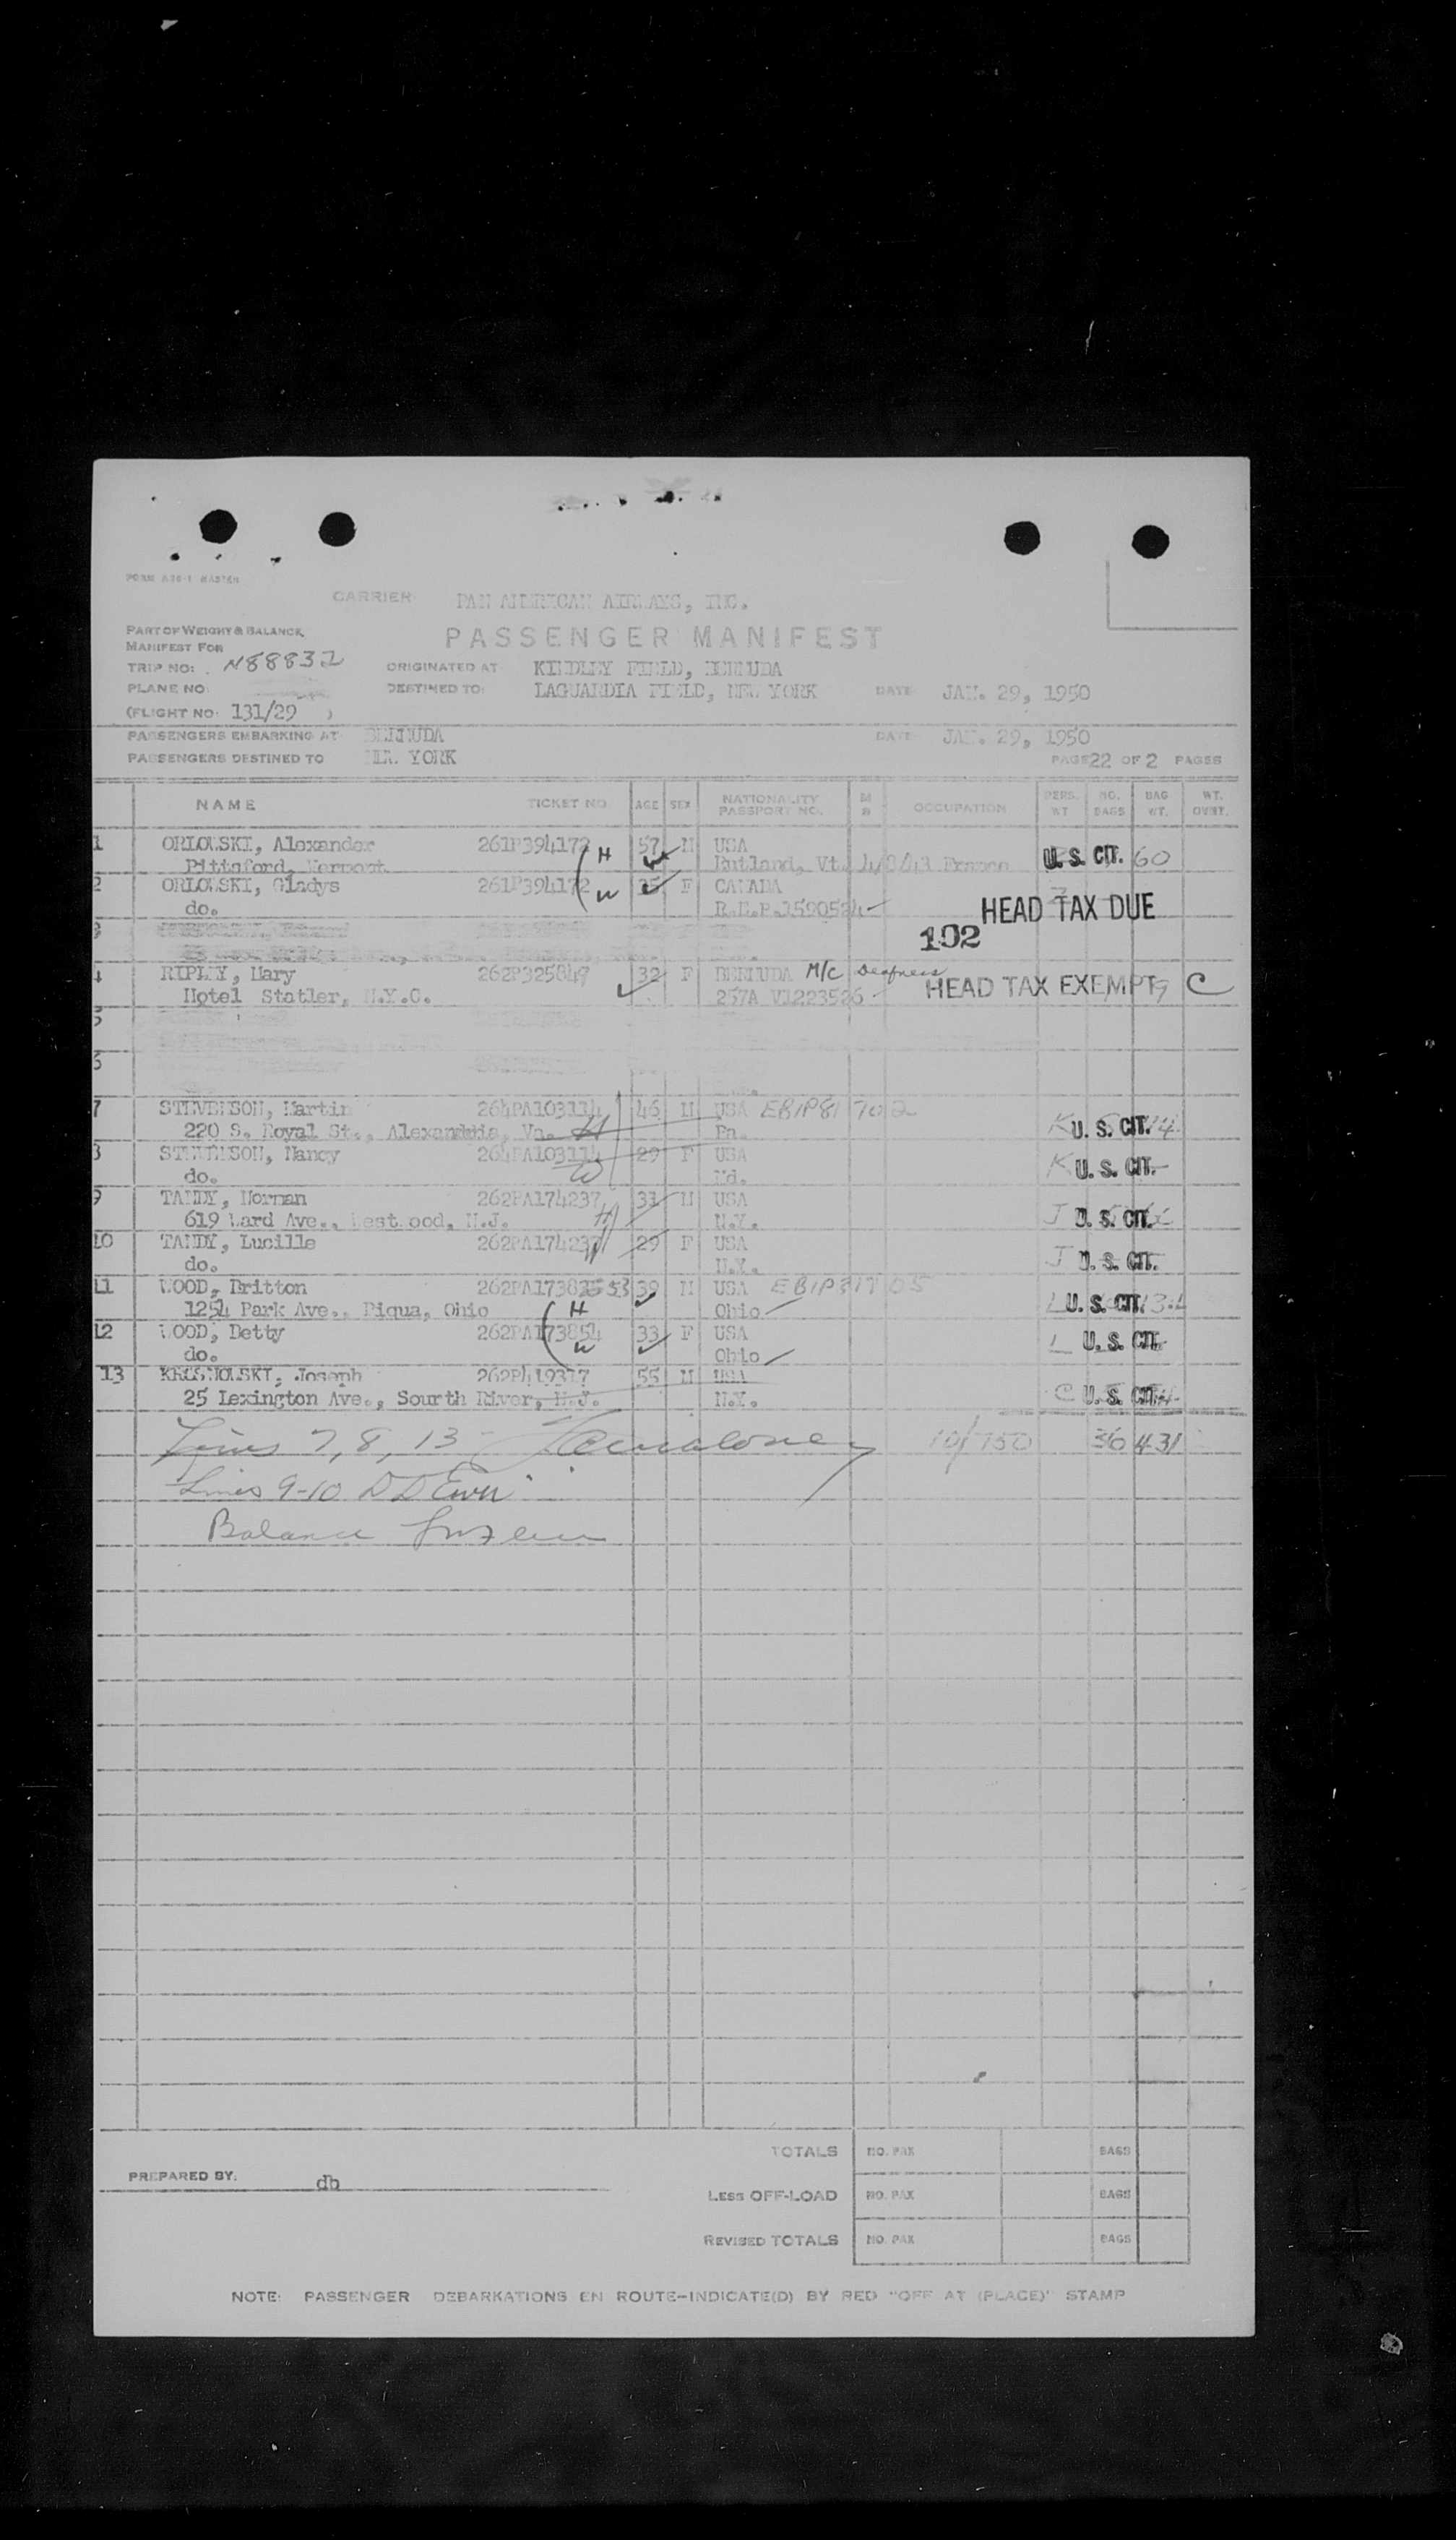 FORM A36-1 MASTER
CARRIER PAN AMERICAN AIRWAYS, INC.
PART OF WEIGHT & BALANCE
MANIFEST FOR
PASSENGER MANIFEST
TRIP NO: N88832
ORIGINATED AT KINDLEY FIELD, BERMUDA
PLANE NO:
DESTINED TO: LAGUARDIA FIELD, NEW YORK DATE JAN. 29, 1950
(FLIGHT NO: 131/29 )
PASSENGERS EMBARKING AT BERMUDA DATE JAN. 29, 1950
PASSENGERS DESTINED TO NEW YORK PAGE 22 OF 2 PAGES
NAME TICKET NO AGE SEX NATIONALITY PASSPORT NO. OCCUPATION PERS. WT NO. BAGS BAG WT. WT. OVRT.
1 ORLOWSKI, Alexander 261P394172 H 57 M USA
Pittsford, Vermont Rutland, Vt. U. S. CIT. 60
2 ORLOWSKI, Gladys 261P394172 W F CANADA
do. HEAD TAX DUE
3 102
4 RIPLEY, Mary 262P325849 32 F BERMUDA M/C Deafness
Hotel Statler, N.Y.C. 257A V1223526 HEAD TAX EXEMPT C
5
6
7 STEVENSON, Martin 264PA103114 46 M USA EBIP81702
220 S. Royal St., Alexandria, Va. H Pa. K U. S. CIT.
8 STEVENSON, Nancy 264PA103114 29 F USA
do. W Md. K U. S. CIT.
9 TANDY, Norman 262PA174237 33 M USA
619 Ward Ave., Westwood, N.J. H N.Y. J U. S. CIT.
10 TANDY, Lucille 262PA174237 29 F USA
do. W N.Y. J U. S. CIT.
11 WOOD, Britton 39 M USA
1254 Park Ave., Piqua, Ohio H Ohio L U. S. CIT.
12 WOOD, Betty 262PA173854 33 F USA
do. W Ohio L U. S. CIT.
13 KRESNOWSKI, Joseph 262P419317 55 M USA
25 Lexington Ave., Sourth River, N.J. N.Y. C U. S. CIT.
Lines 7, 8, 13 10/ 36 431
Lines 9-10
Balance
TOTALS NO. PAX BAGS
PREPARED BY: db
LESS OFF-LOAD NO. PAX BAGS
REVISED TOTALS NO. PAX BAGS
NOTE: PASSENGER DEBARKATIONS EN ROUTE-INDICATE(D) BY RED "OFF AT (PLACE)" STAMP